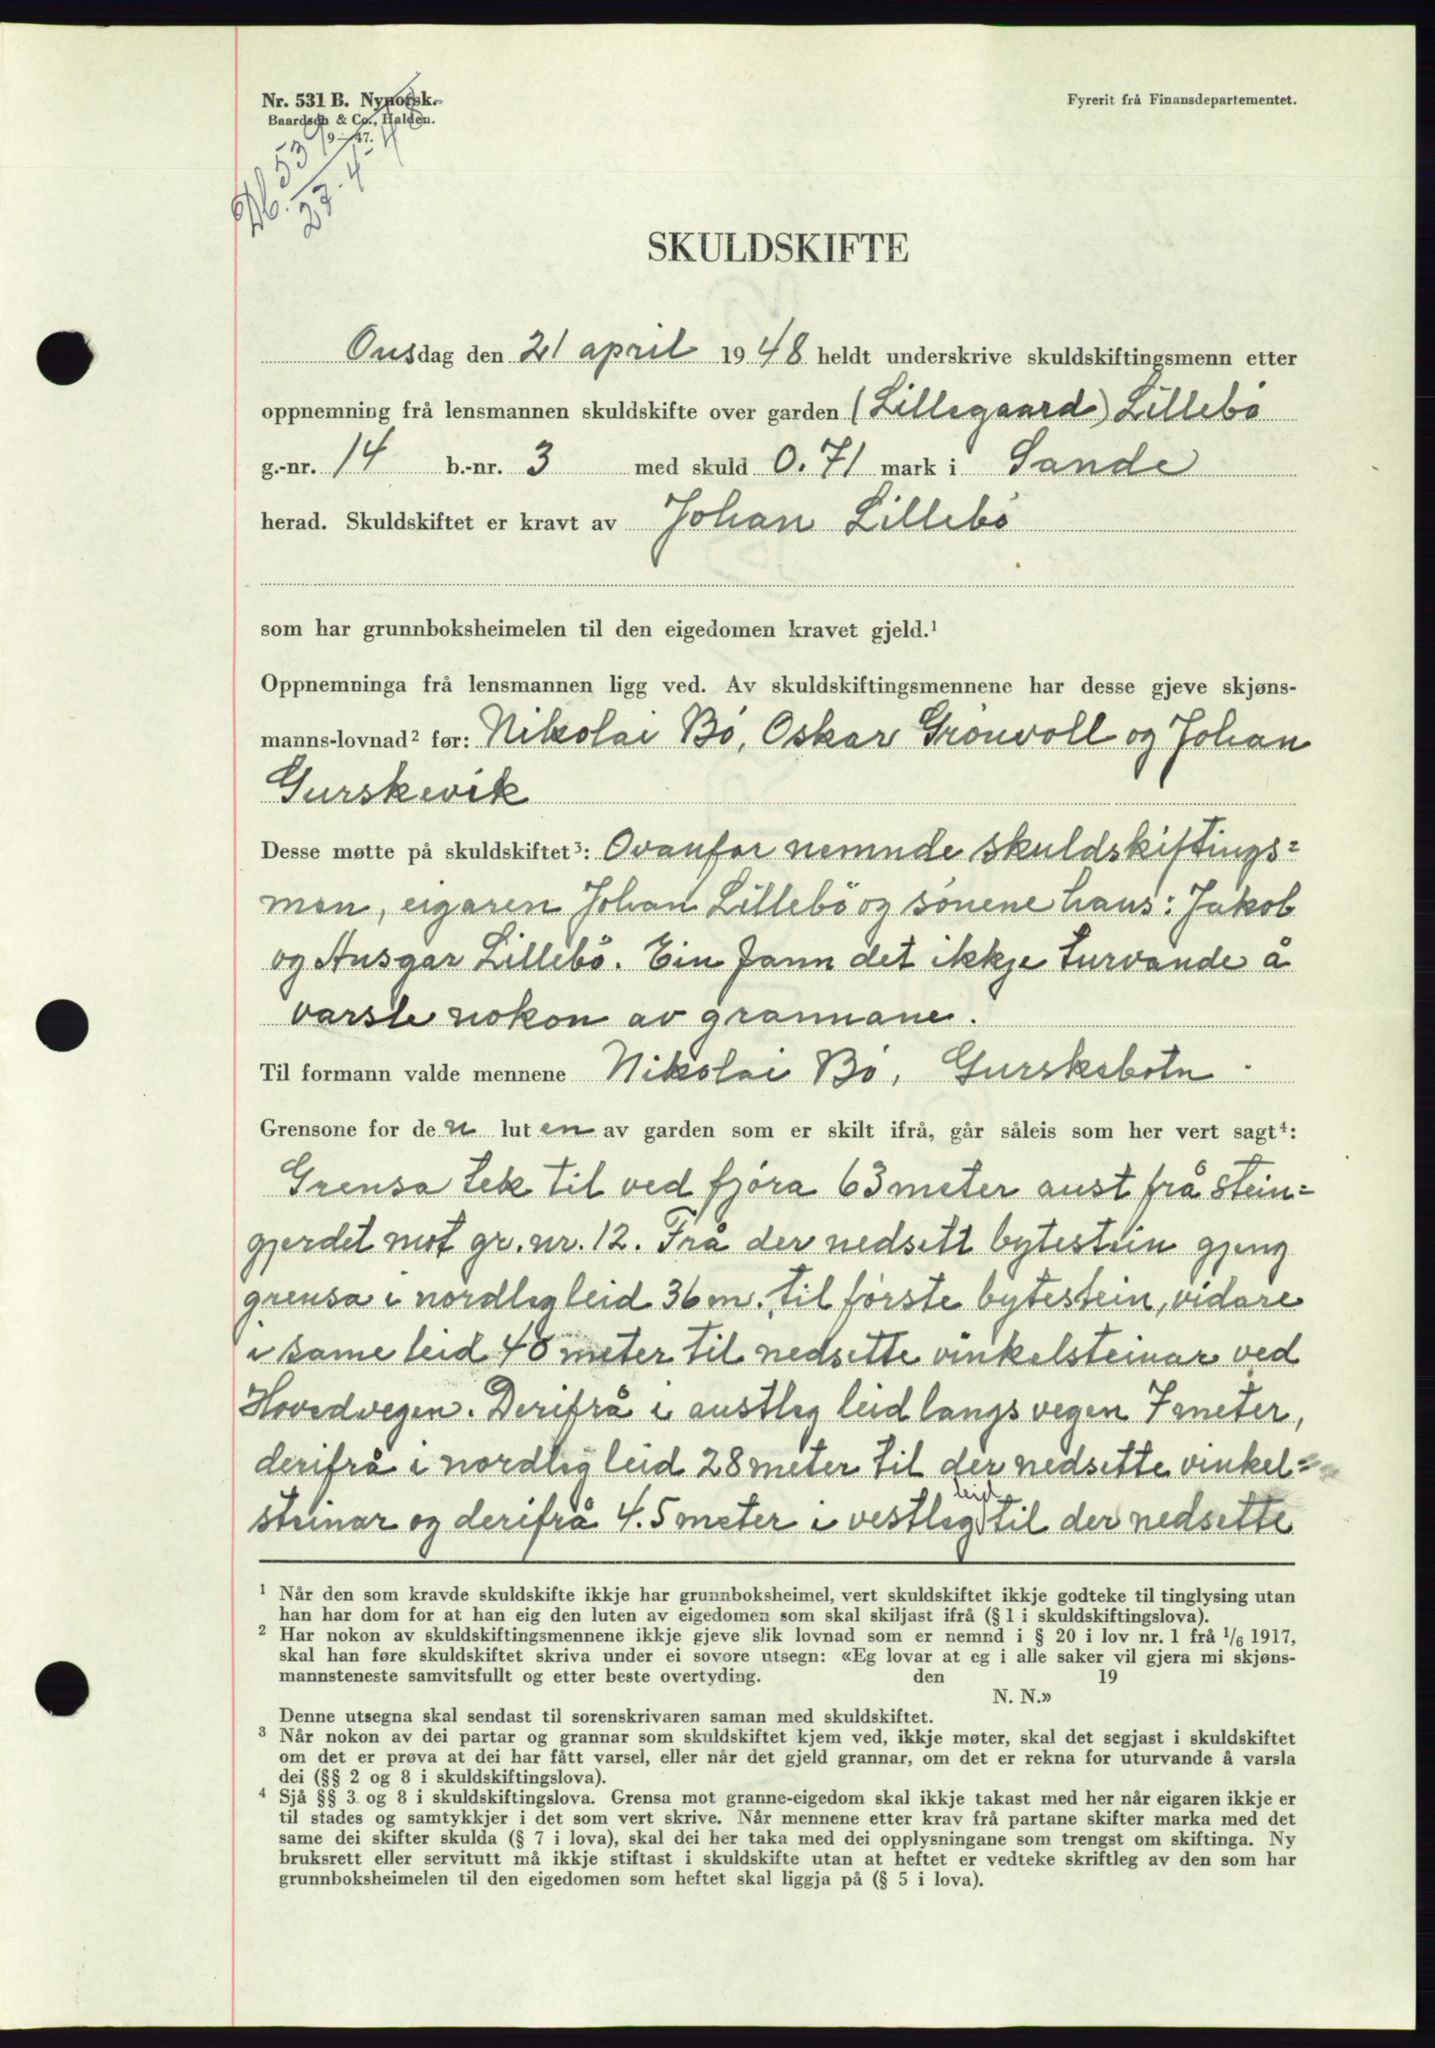 Nr. 531 B. Nynorsk.
Baardsen & Co., Halden.
9—47.
Db. 539
27-4-48
Fyrerit frå Finansdepartementet.
SKULDSKIFTE
Onsdag den 21 april 1948 heldt underskrive skuldskiftingsmenn etter
oppnemning frå lensmannen skuldskifte over garden (Lillegaard) Lillebö
g.-nr. 14 b.-nr. 3 med skuld 0.71 mark i Sande
herad. Skuldskiftet er kravt av Johan Lillebö
som har grunnboksheimelen til den eigedomen kravet gjeld.¹
Oppnemninga frå lensmannen ligg ved. Av skuldskiftingsmennene har desse gjeve skjøns-
manns-lovnad² før: Nikolai Bö, Oskar Grönvoll og Johan
Gurskevik
Desse møtte på skuldskiftet³: Ovanfor nemnde skuldskiftings=
men, eigaren Johan Lillebö og sönene hans: Jakob
og Ansgar Lillebö. Ein fann det ikkje turvande å
varsle nokon av grannane.
Til formann valde mennene Nikolai Bö, Gurskebotn.
Grensone for den luten av garden som er skilt ifrå, går såleis som her vert sagt⁴:
Grensa tek til ved fjöra 63 meter aust frå stein=
gjerdet mot gr. nr. 12. Frå der nedsett bytestein gjeng
grensa i nordleg leid 36 m. til förste bytestein, vidare
i same leid 40 meter til nedsette vinkelsteinar ved
Hovedvegen. Derifrå i austleg leid langs vegen 7 meter,
derifrå i nordleg leid 28 meter til der nedsette vinkel=
steinar og derifrå 4.5 meter i vestleg leid til der nedsette
¹ Når den som kravde skuldskifte ikkje har grunnboksheimel, vert skuldskiftet ikkje godteke til tinglysing utan
han har dom for at han eig den luten av eigedomen som skal skiljast ifrå (§ 1 i skuldskiftingslova).
² Har nokon av skuldskiftingsmennene ikkje gjeve slik lovnad som er nemnd i § 20 i lov nr. 1 frå 1/6 1917,
skal han føre skuldskiftet skriva under ei sovore utsegn: «Eg lovar at eg i alle saker vil gjera mi skjøns-
mannsteneste samvitsfullt og etter beste overtyding. den 19
N. N.»
Denne utsegna skal sendast til sorenskrivaren saman med skuldskiftet.
³ Når nokon av dei partar og grannar som skuldskiftet kjem ved, ikkje møter, skal det segjast i skuldskiftet
om det er prøva at dei har fått varsel, eller når det gjeld grannar, om det er rekna for uturvande å varsla
dei (§§ 2 og 8 i skuldskiftingslova).
⁴ Sjå §§ 3 og 8 i skuldskiftingslova. Grensa mot granne-eigedom skal ikkje takast med her når eigaren ikkje er
til stades og samtykkjer i det som vert skrive. Når mennene etter krav frå partane skifter marka med det
same dei skifter skulda (§ 7 i lova), skal dei her taka med dei opplysningane som trengst om skiftinga. Ny
bruksrett eller servitutt må ikkje stiftast i skuldskifte utan at heftet er vedteke skriftleg av den som har
grunnboksheimelen til den eigedomen som heftet skal liggja på (§ 5 i lova).